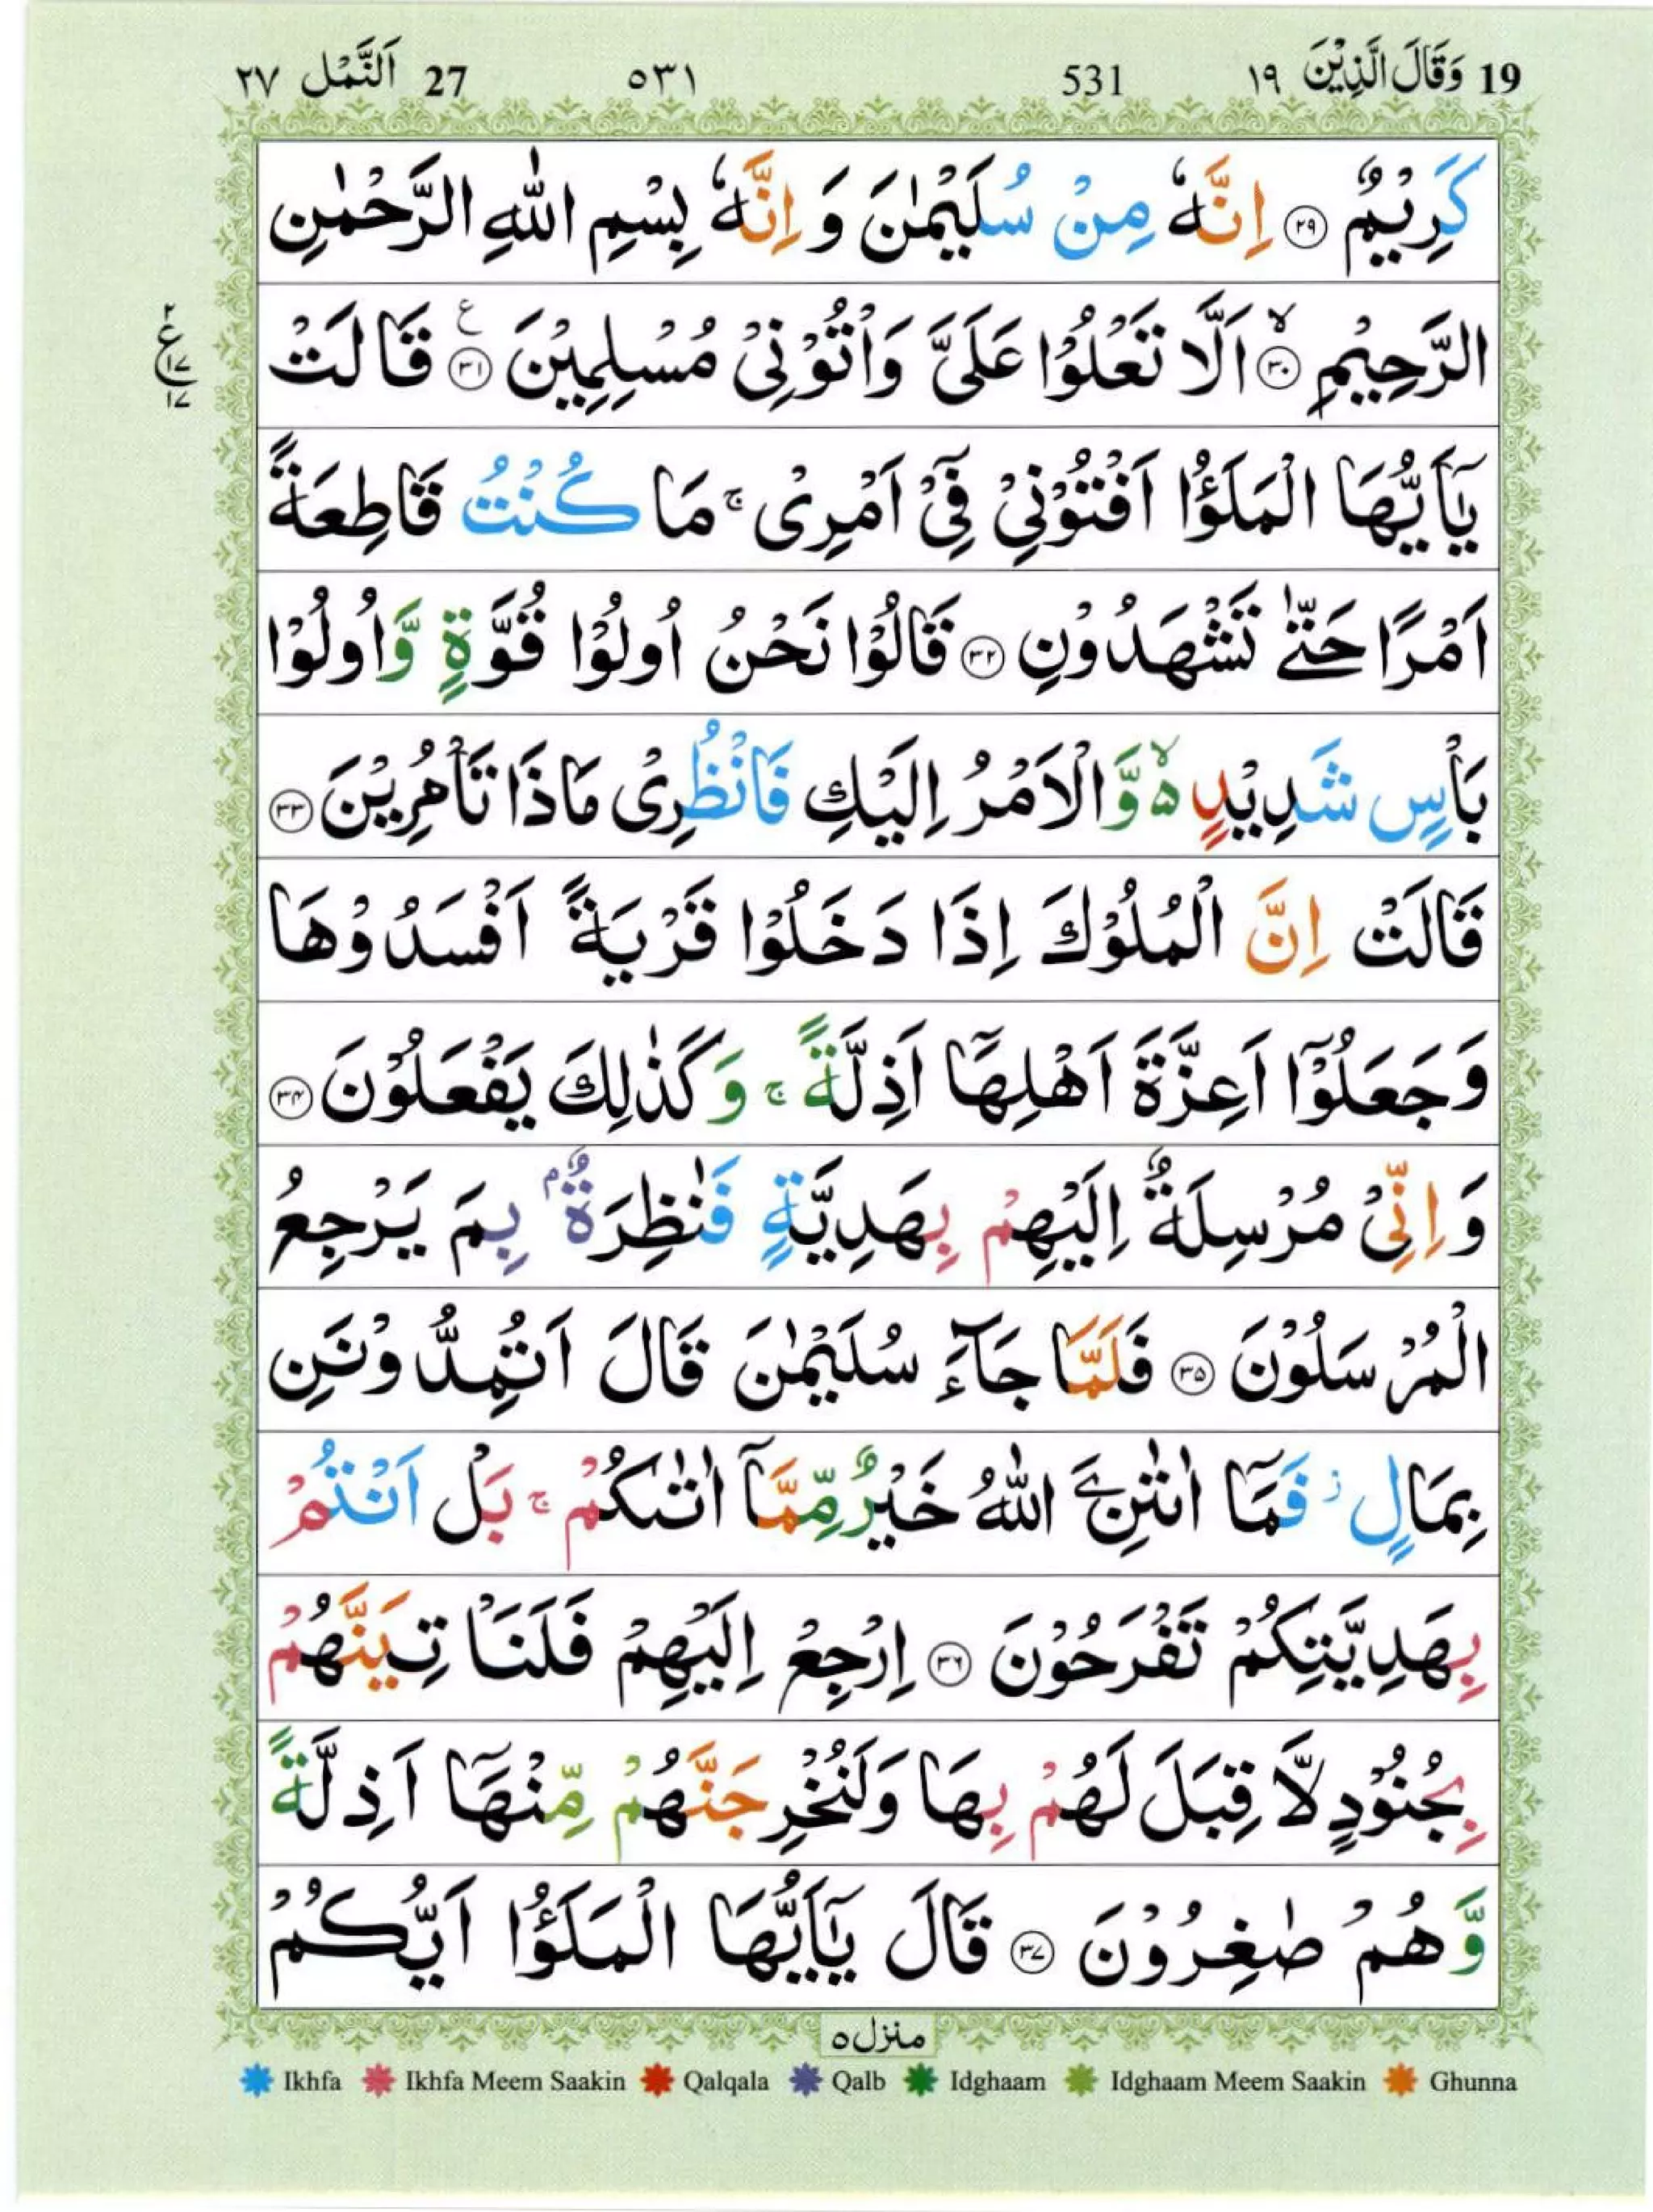 19 وَقَالَ الَّذِيْنَ ١٩ 531 ٥٣١ 27 اَلنَّمْل ٢٧
كَرِيْمٌ ﴿۲۹﴾ اِنَّهٗ مِنْ سُلَيْمٰنَ وَ اِنَّهٗ بِسْمِ اللّٰهِ الرَّحْمٰنِ
الرَّحِيْمِ ۙ﴿۳۰﴾ اَلَّا تَعْلُوْا عَلَيَّ وَاْتُوْنِيْ مُسْلِمِيْنَ ﴿۳۱﴾ ع قَالَتْ
ع ٢ ١٧ ١٧
يٰٓاَيُّهَا الْمَلَؤُا اَفْتُوْنِيْ فِيْٓ اَمْرِيْ ۚ مَا كُنْتُ قَاطِعَةً
اَمْرًا حَتّٰى تَشْهَدُوْنِ ﴿۳۲﴾ قَالُوْا نَحْنُ اُولُوْا قُوَّةٍ وَّاُولُوْا
بَاْسٍ شَدِيْدٍ ۵ۙ وَّالْاَمْرُ اِلَيْكِ فَانْظُرِيْ مَاذَا تَاْمُرِيْنَ ﴿۳۳﴾
قَالَتْ اِنَّ الْمُلُوْكَ اِذَا دَخَلُوْا قَرْيَةً اَفْسَدُوْهَا
وَجَعَلُوْٓا اَعِزَّةَ اَهْلِهَآ اَذِلَّةً ۚ وَكَذٰلِكَ يَفْعَلُوْنَ ﴿۳۴﴾
وَاِنِّيْ مُرْسِلَةٌ اِلَيْهِمْ بِهَدِيَّةٍ فَنٰظِرَةٌۢ بِمَ يَرْجِعُ
الْمُرْسَلُوْنَ ﴿۳۵﴾ فَلَمَّا جَآءَ سُلَيْمٰنَ قَالَ اَتُمِدُّوْنَنِ
بِمَالٍ ز فَمَآ اٰتٰىنِۦَ اللّٰهُ خَيْرٌ مِّمَّآ اٰتٰىكُمْ ۚ بَلْ اَنْتُمْ
بِهَدِيَّتِكُمْ تَفْرَحُوْنَ ﴿۳۶﴾ اِرْجِعْ اِلَيْهِمْ فَلَنَاْتِيَنَّهُمْ
بِجُنُوْدٍ لَّا قِبَلَ لَهُمْ بِهَا وَلَنُخْرِجَنَّهُمْ مِّنْهَآ اَذِلَّةً
وَّهُمْ صٰغِرُوْنَ ﴿۳۷﴾ قَالَ يٰٓاَيُّهَا الْمَلَؤُا اَيُّكُمْ
منزل ٥
Ikhfa Ikhfa Meem Saakin Qalqala Qalb Idghaam Idghaam Meem Saakin Ghunna